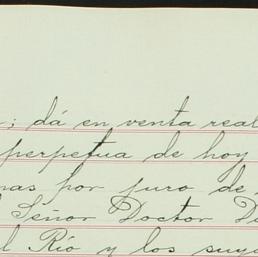 ; dá en venta real
perpetua de hoy
mas por juro de
Señor Doctor D
l Río y los suyo